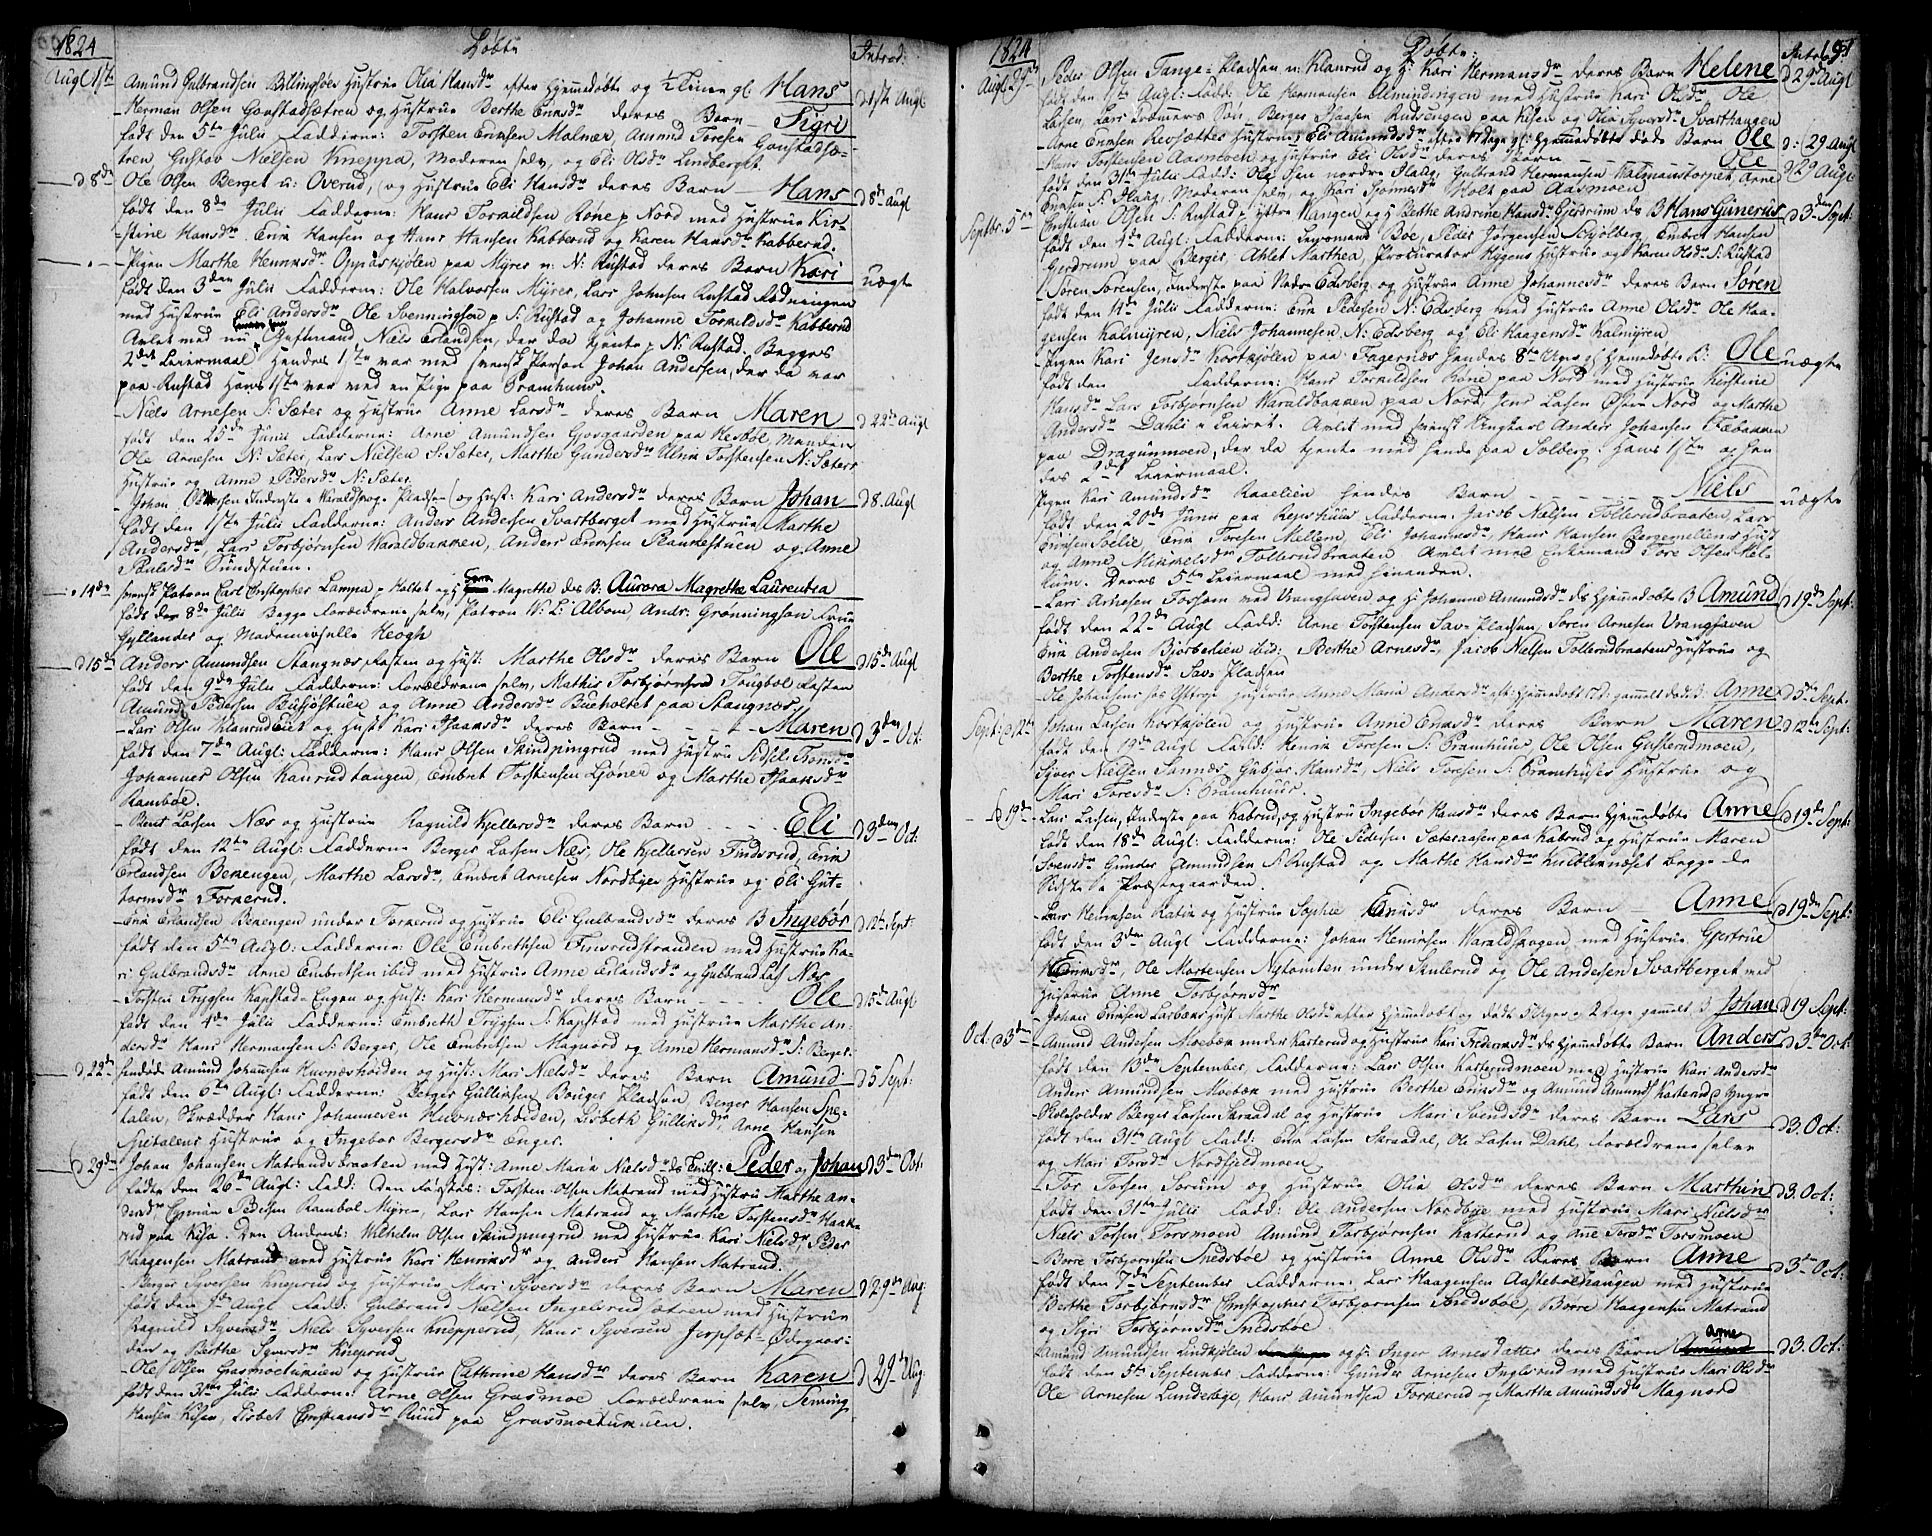 1824 Døbte Introd:
Augl 1ste Amund Gulbrandsen Billingsøes Hustrue Olia Hansdr efter Hjemmedøbte og ½ Time gl: Hans d 1ste Augl
Herman Olsen Gonstadsætren og Hustrue Berthe Ericsdr deres Barn Sigri
født den 5te Julii Fadderne: Torsten Ericsen Malmer, Amund Toresen Gonstadsæ-
tren, Gustav Nielsen Kneppa, Moderen selv, og Eli Olsdr Lindberget.
d 8de Ole Olsen Berget u: Overud, og Hustrue Eli Hansdr deres Barn Hans d 8de Augl
født den 8de Julii Fadderne: Hans Torkildsen Røne p Nord med Hustrue Kir-
stine Hansdr Eric Hansen og Hans Hansen Kabberud og Karen Hansdr Kabberud.
Pigen Marthe Henriksdr Oppaskjølen paa Myrer u: N: Rustad deres Barn Kari uægte
født den 3den Julii Fadderne: Ole Halvorsen Myrer, Lars Johnsen Rustad Fødningen
med Hustrue Eli Andersdr Ole Svenningsen p S: Rustad og Johanne Torkildsdr Kabberud
Avlet med nu Gustmand Niels Erlandsen, der da tjente p N: Rustad. Begges
2det Leiermaal, Hendes 1ste var med svensk Person Johan Andersen, der da var
paa Rustad Hans 1ste var med en Pige paa Bramhuus.
Niels Arnesen S: Sæter og Hustrue Anne Larsdr deres Barn Maren d 22de Augl
født den 25de Junii Fadderne: Arne Amundsen Gjovgaarden paa Hesbøl, Manden
Ole Arnesen N: Sæter, Lars Nielsen S: Sæter, Marthe Gundersdr Ulrik Torstensen N: Sæters
Hustrue og Anne Pedersdr N: Sæter
Johan Olsen Inderste i Varaldskog-Pladsen og Hust: Kari Andersdr deres Barn Johan d 8 Augl
født den 1ste Julii Fadderne: Anders Andersen Svartberget med Hustrue Marthe
Andersdr, Lars Torbjørnsen Varaldbakken, Anders Ericsen Plankestuen og Anne
Poulsdr Sundstuen.
14de svensk Patron Carl Christopher Lampa p Holtet og H Sara Magrethe des B: Aurora Magrethe Laurentia
født den 8de Julii Begge Forældrene selv, Patron W: L: Albom, Andr: Grønningson Frue
Gyllander og Mademoiselle Keogh
d 15de Anders Amundsen Stangnæs-Fasten og Hust: Marthe Olsdr deres Barn Ole d 15de Augl
født den 9de Julii Fadderne: Forældrene selv, Mathis Torbjørnsen Tougbøl-Fasten
Amund Pedersen Bussjøstuen og Anne Andersdr Bueholtet paa Stangnæs.
Lars Olsen Klanrud Eiet og Hust: Kari Isaaksdr deres Barn Maren d 3den Oct:
født den 7de Augl: Fadderne: Hans Olsen Skindpungrud med Hustrue Sidsel Tronsdr
Johannes Olsen Kanrudtangen, Embret Torstensen Ljøner og Marthe Isaaksdr
Rambøl.
Bent Larsen Næs og Hustrue Ragnild Kjellersdr deres Barn Eli d 3den Oct:
født den 12te Augl: Fadderne Berger Larsen Næs, Ole Kjellersen Findsrud, Eric
Erlandsen Bekengen, Marthe Larsdr, Embret Arnesen Nordbyes Hustrue og Eli Gut-
tormsdr Forkerud.
Eric Erlandsen Bekengen under Forkerud og Hustrue Eli Gulbrandsdr deres B Ingebør d 12te Sept:
født den 5te Augl: Fadderne: Ole Embrethsen Finsrudstranden med Hustrue Ka-
ri Gulbrandsdr Arne Embretsen ibid med Hustrue Anne Erlandsdr og Gulbrand Las: Næs
Torsten Trygsen Kapstad-Engen og Hust: Kari Hermansdr deres Barn Ole d 15de Augl
født den 4de Julii Fadderne: Embreth Trygsen S: Kapstad med Hustrue Marthe An-
dersdr Hans Hermansen S: Berger, Ole Embretsen Magnord og Anne Hermansdr S: Berger.
d 22de Amund Johannsen Huvnæshøiden og Hust: Mari Nielsdr deres Barn Amund d 5 Sept:
født den 6te Augl: Fadderne: Berger Gullichsen Bøuger Pladsen, Berger Hansen Spe-
talen, Skrædder Hans Johannesen Huvnæshøiden, Lisbeth Gulliksdr, Arne Hansen
Spetalens Hustrue og Ingebør Bergersdr Enger.
d 29de Johan Johansen Matrandsbraaten med Hust: Anne Maria Nielsdr des Tvill: Peder og Johan d 3den Oct:
født den 26de Augl: Fadd: Den Førstes: Torsten Olsen Matrand med Hustrue Marthe An-
dersdr Colman Pedersen Rambøl Myre, Lars Hansen Matrand og Marthe Torstensdr Haake-
rud paa Kisa. Den Andens: Wilhelm Olsen Skindpungrud med Hustrue Kari Nielsdr, Peder
Haagensen Matrand med Hustrue Kari Henriksdr og Anders Hansen Matrand.
Berger Syversen Kneprud og Hustrue Mari Syversdr deres Barn Maren d 29de Aug:
født den Augl: Fadd: Gulbrand Nielsen Ingelsrud ætren med Hustrue
Ragnild Syversdr Niels Syversen Knepperud, Hans Syversen Jerpsæt-Ødegaar-
den og Berthe Syversdr Kneprud
Ole Olsen Grasmoeturuen og Hustrue Cathrine Hansdr deres Barn Karen d 29de Aug:
født den 31te Julii Fadderne: Arne Olsen Grasmoe Forældrene selv, Fenning
Hansen Kisen, Lisbet Christiansdr Ruud paa Grasmoeturuen.
1824 Døbte: Introd: 191
Augl 29de Peder Olsen Tange-Pladsen u: Klanrud og H: Kari Hermansdr deres Barn Helene d 29de Augl
født den 1ste Augl: Fadd: Ole Hermansen Amundengen med Hustrue Kari Olsdr Ole
Larsen, Lars Kræmers Søn, Berger Isaksen Rudsengen paa Kisen og Olia Syversdr Svarthaugen
Arne Ericsen Revsættes Hustrue Eli Amundsdr efter 17 Dage gl: Hjemmedøbte døde Barn Ole d: 29 Augl
Hans Torstensen Aasmoen og Hustrue Eli Olsdr deres Barn Ole d 29 Augl
født den 31te Julii Fadd: Ole Olsen nordre Flaag, Gulbrand Hermansen Kalmanstorpet, Arne
Ericsen S: Flaag, Moderen selv, og Kari Tønnesdr Holt paa Aasmoen
Septbr: 5te Christian Olsen S: Rustad p Yttre Vangen og H Berthe Andrine Hansdr Gjerdrum ds B Hans Gunerius d 3den Sept:
født den 4de Augl: Fadderne: Leyermand Boe, Peder Jørgensen Skjølberg, Embret Hansen
Gjerdrum paa Berger, Ahlet Marthea, Procurator Rygens Hustrue og Karen Olsdr S: Rustad
Søren Sørensen, Inderste paa Nedre Edsberg og Hustrue Anne Johannesdr deres Barn Søren
født den 11te Julii Fadderne: Eric Pedersen N: Edsberg med Hustrue Anne Olsdr Ole Haa-
gensen Kalmyren, Niels Johannesen N: Edsberg og Eli Haagensdr Kalmyren
Pigen Kari Jensdr Kostkjølen paa Fagernæs Hendes 8te Uger gl: Hjemdøbte B: Ole uægte
født den Fadderne: Hans Torkildsen Røne paa Nord med Hustrue Kirstine
Hansdr Lars Torbjørnsen Varaldbakken paa Nord, Jens Larsen Øster Nord og Marthe
Andersdr Dahli i Leiret. Avlet med svensk Ungkarl Anders Johansen Fæbakken
paa Dragunmoen, der da tjente med hende paa Solberg: Hans 1ste og hen-
des 2det Leiermaal.
Pigen Kari Amundsdr Raaelien Hendes Barn Niels uægte
født den 20de Junii paa Repshuus Fadderne: Jacob Nielsen Tollerudbraaten, Lars
Ericsen Sølie, Eric Toresen Mellem, Eli Johannesdr Hans Hansen Bergemellens Hust
og Anne Mikkelsdr Tollerudbraaten. Avlet med Enkemand Tore Olsen Mel-
lum. Deres 5te Leiermaal med hinanden.
Lars Arnesen Forsom med Vranghaven og H: Johanne Amundsdr ds Hjemmedøbte B Amund d 19de Sept:
født den 22de Augl Fadd: Arne Torstensen Sav-Pladsen, Søren Arnesen Vranghaven
Eric Andersen Bjørbetlien ibid: Berthe Arnesdr, Jacob Nielsen Tollerudbraatens Hustrue og
Berthe Torstensdr Sav-Pladsen
Ole Johansens Hustrue Anne Maria Andersdr eft: Hjemmedøbt 17 d: gammelt død d: Anne d 5te Sept:
Sept: d 12te Johan Larsen Kostkjølen og Hustrue Anne Ericsdr deres Barn Maren d 12te Sept:
født den 19de Augl Fadd: Henrik Toresen S: Bramhuus, Ole Olsen Gusterudmoen,
Syver Nielsen Sannæs, Gubjør Hansdr, Niels Toresen S: Bramhuses Hustrue og
Mari Toresdr S: Bramhuus.
d 19de Lars Larsen, Inderste paa Kabrud, og Hustrue Ingebør Hansdr deres Barn Hjemmedøbte Anne d 19de Sept:
født den 18de Augl: Fadderne: Ole Pedersen Sæteraasen paa Kabrud og Hustrue Maren
Svensdr Gunder Amundsen S: Rustad og Marthe Hansdr Kulblennæset begge de
Sidste i Præstegaarden.
Lars Henriksen Ratin og Hustrue Sophie Ericsdr deres Barn Anne d 19de Sept:
født den 3den Augl Fadderne: Johan Henriksen Varaldskogen med Hustrue Gjertrue
Ericsdr, Ole Mortensen Nytomten under Skulerud og Ole Andersen Svartberget med
Hustrue Anne Torbjørnsdr
Johan Ericsen Lerbæks Hust Marthe Olsdr efter Hjemmedøbt og døde 5 Uger og 2 Dage gammelt B Johan d 19 Sept:
Oct: d 3de Amund Andersen Moebæk under Kasterud og Hustrue Kari Fredericsdr ds Hjemmedøbte Barn Anders d 3de Oct:
født den 13de September, Fadderne: Lars Olsen Kasterudmoen med Hustrue Kari Andersdr
Anders Amundsen Moebæk med Hustrue Berthe Ericsdr og Amund Amunds: Kasterud p Yngre
Skoleholder Berger Larsen Skraadal og Hustrue Mari Svendsdr deres Barn Lars d 3. Oct:
født den 31te Augl Fadd: Eric Larsen Skraadal, Ole Larsen Dahl, Forældrene selv
og Mari Torsdr Nordfjeldmoen
Tor Torsen Sorum og Hustrue Olia Olsdr deres Barn Marthin d 3. Oct:
født den 31te Julii Fadd: Ole Andersen Nordbye med Hustrue Mari Nielsdr
Niels Torsen Torsmoen Amund Torbjørnsen Kasterud og Ane Torsdr Torsmoen
Børre Torbjørnsen Snedsbøe og Hustrue Anne Olsdr deres Barn Anne d 3de Oct:
født den 7de September Fadderne: Lars Haagensen Aastebølhaugen med Hustrue
Berthe Torbjørnsdr Christopher Torbjørnsen Snedsbøe, Børre Haagensen Matrand
og Sigri Torbjørnsdr Snedsbøe
Amund Amundsen Lindkjølen og H: Inger Arnesdatter deres Barn Arne d 3. Oct:
født den 5te September Fadderne: Gunder Arnesen Inglsrud med Hustrue Mari Olsdr
Ole Arnesen Lundebye, Hans Amundsen Forkerud og Martha Amundsdr Magnord